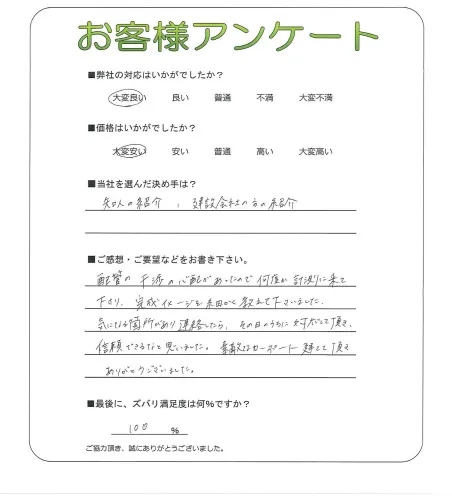 お客様アンケート
■弊社の対応はいかがでしたか?
大変良い 良い 普通 不満 大変不満
■価格はいかがでしたか?
大変安い 安い 普通 高い 大変高い
■当社を選んだ決め手は?
知人の紹介 , 建設会社の方の紹介
■ご感想・ご要望などをお書き下さい。
配管の干渉の心配があったので何度か計測に来て
下さり、完成イメージを細かく教えて下さいました。
気になる箇所があり連絡したら、その日のうちに対応して頂き、
信頼できるなと思いました。素敵なカーポート建てて頂き
ありがとうございました。
■最後に、ズバリ満足度は何%ですか?
100 %
ご協力頂き、誠にありがとうございました。